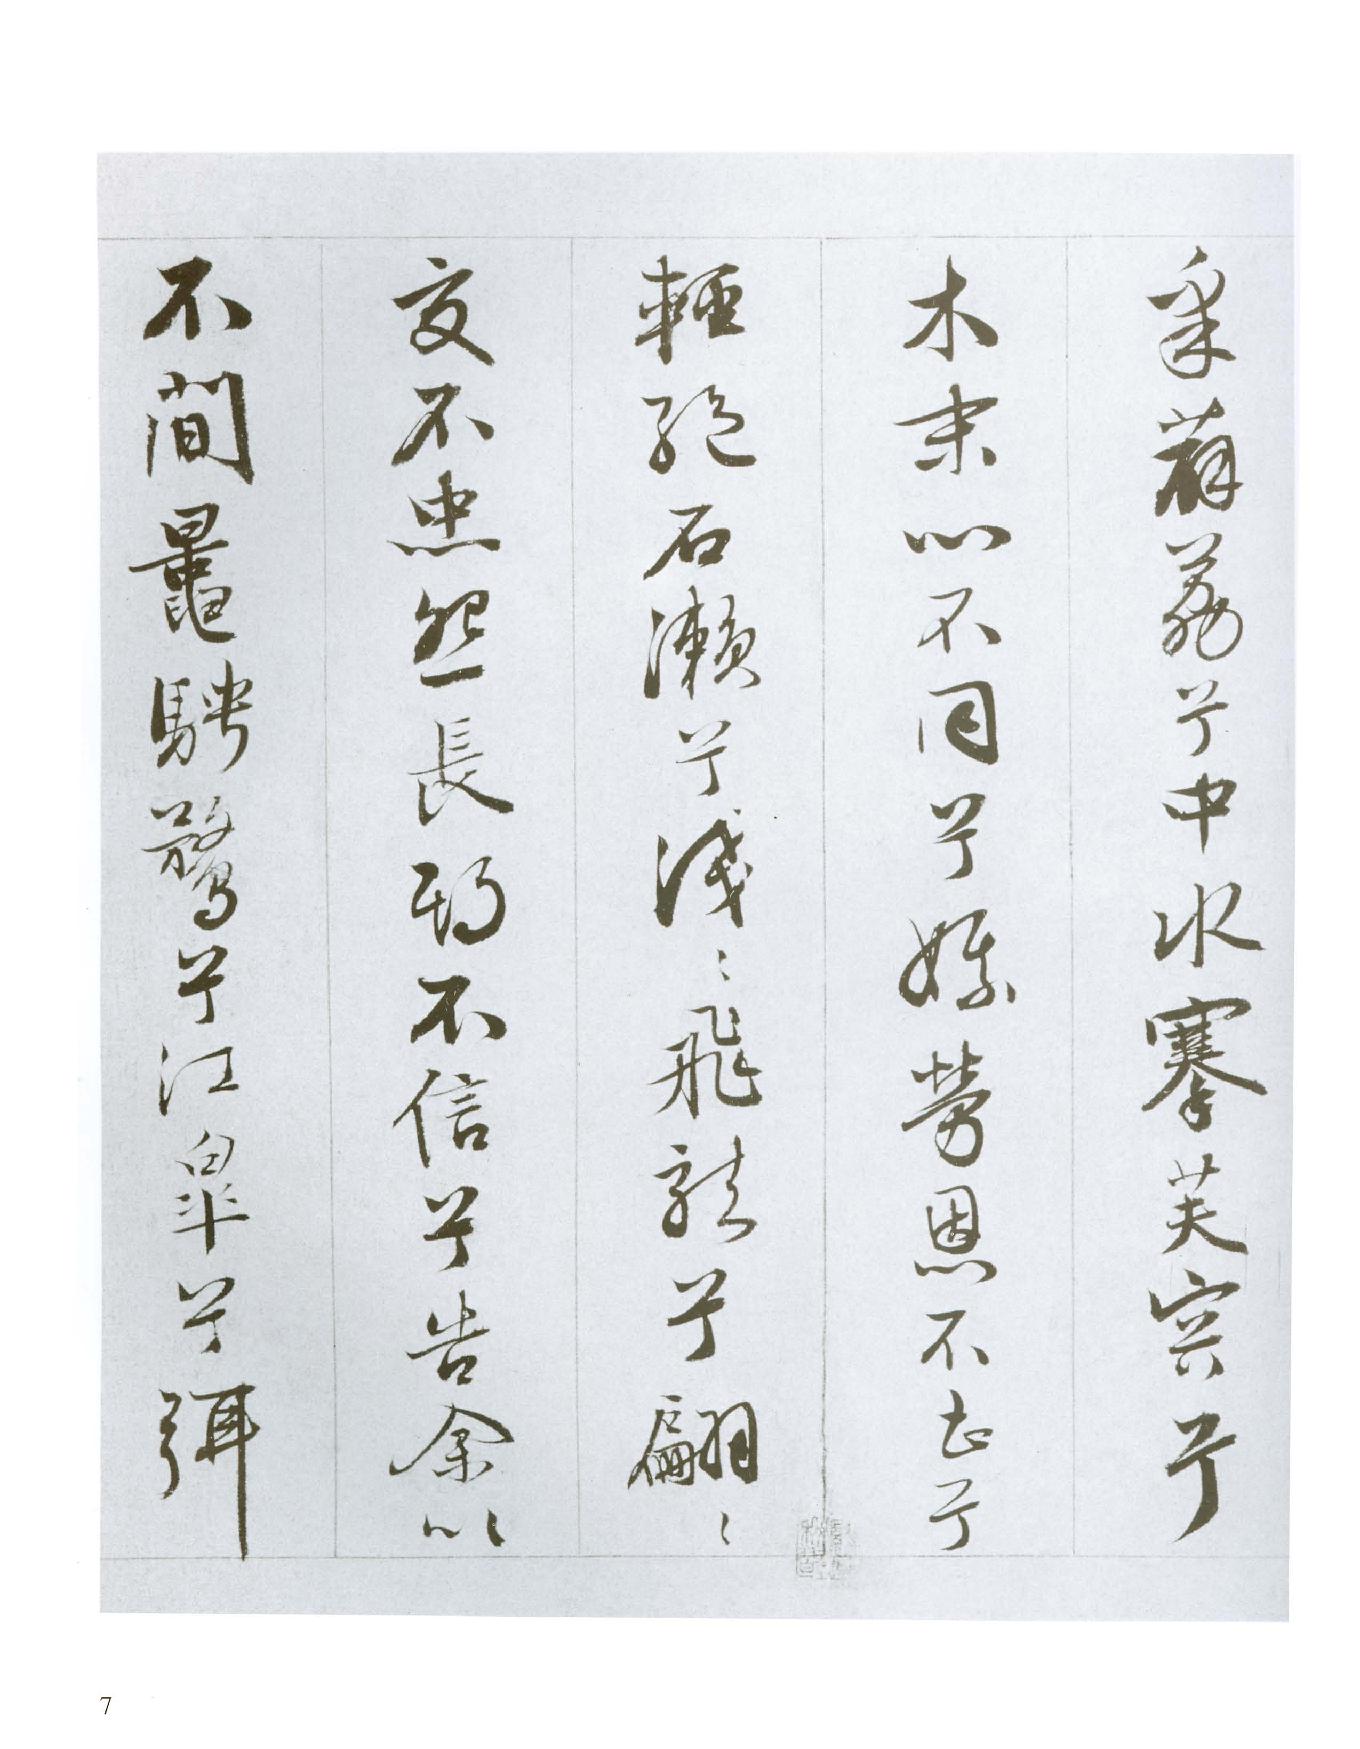 采薜荔兮中水搴芙蓉兮
木末心不同兮媒勞恩不甚兮
輕絕石瀨兮淺〻飛龍兮翩〻
交不忠怨長期不信兮告余以
不閒鼂騁騖兮江皋兮弭
7